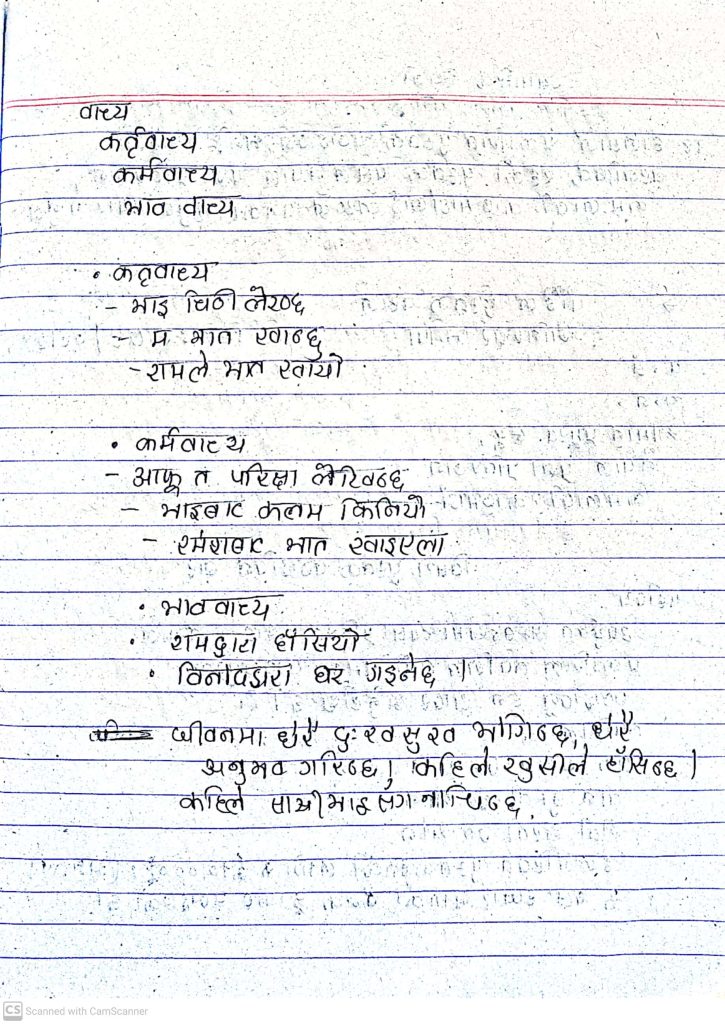 वाच्य
कर्तृवाच्य
कर्मवाच्य
भाव वाच्य
• कतृवाच्य
- भाइ चिठी लेख्छ
- म भात खान्छु
- रामले भात खायो
• कर्मवाच्य
- आफू त परिक्षा लेखिन्छ
- भाइबाट कलम किनियो
- रमेशबाट भात खाइएला
• भाववाच्य
• रामद्वारा हाँसियो
• विनोदद्वारा घर गइनेछ ।
जीवनमा धेरै दुःख सुख भोगिन्छ, धेरै
अनुभव गरिन्छ । कहिले खुसीले हाँसिन्छ ।
कहिले साथीभाइ सँग नाचिन्छ
CS Scanned with CamScanner